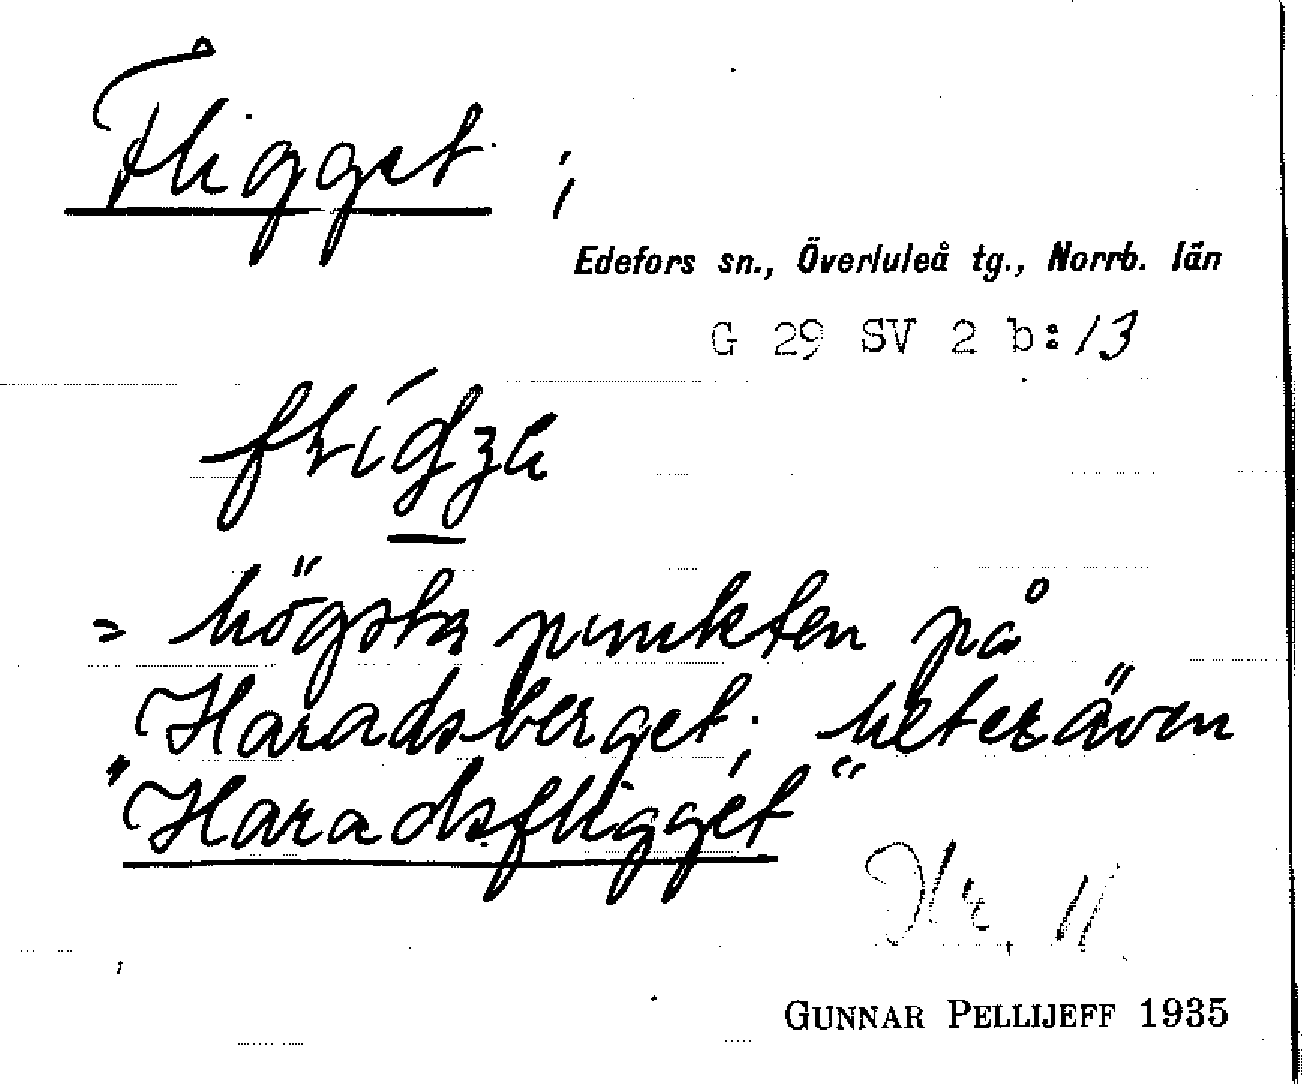 Fligget ;
Edefors sn., Överluleå tg., Norrb. län
G 29 SV 2 b:13
= högsta punkten på
Haradsberget; heter även
"Haradsfligget"
GUNNAR PELLIJEFF 1935